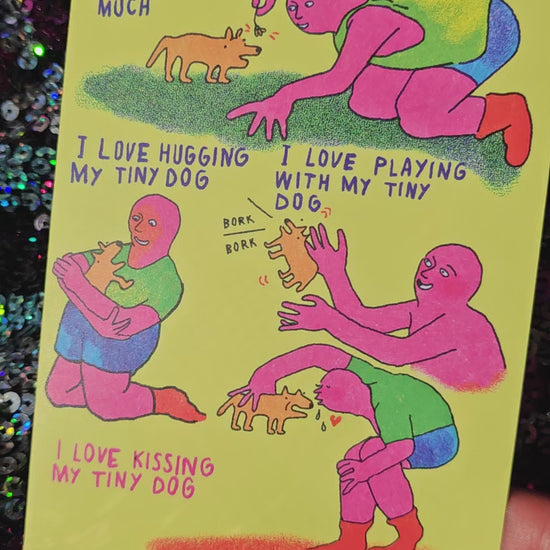 MUCH
I LOVE HUGGING
MY TINY DOG
I LOVE PLAYING
WITH MY TINY
DOG
BORK
BORK
I LOVE KISSING
MY TINY DOG